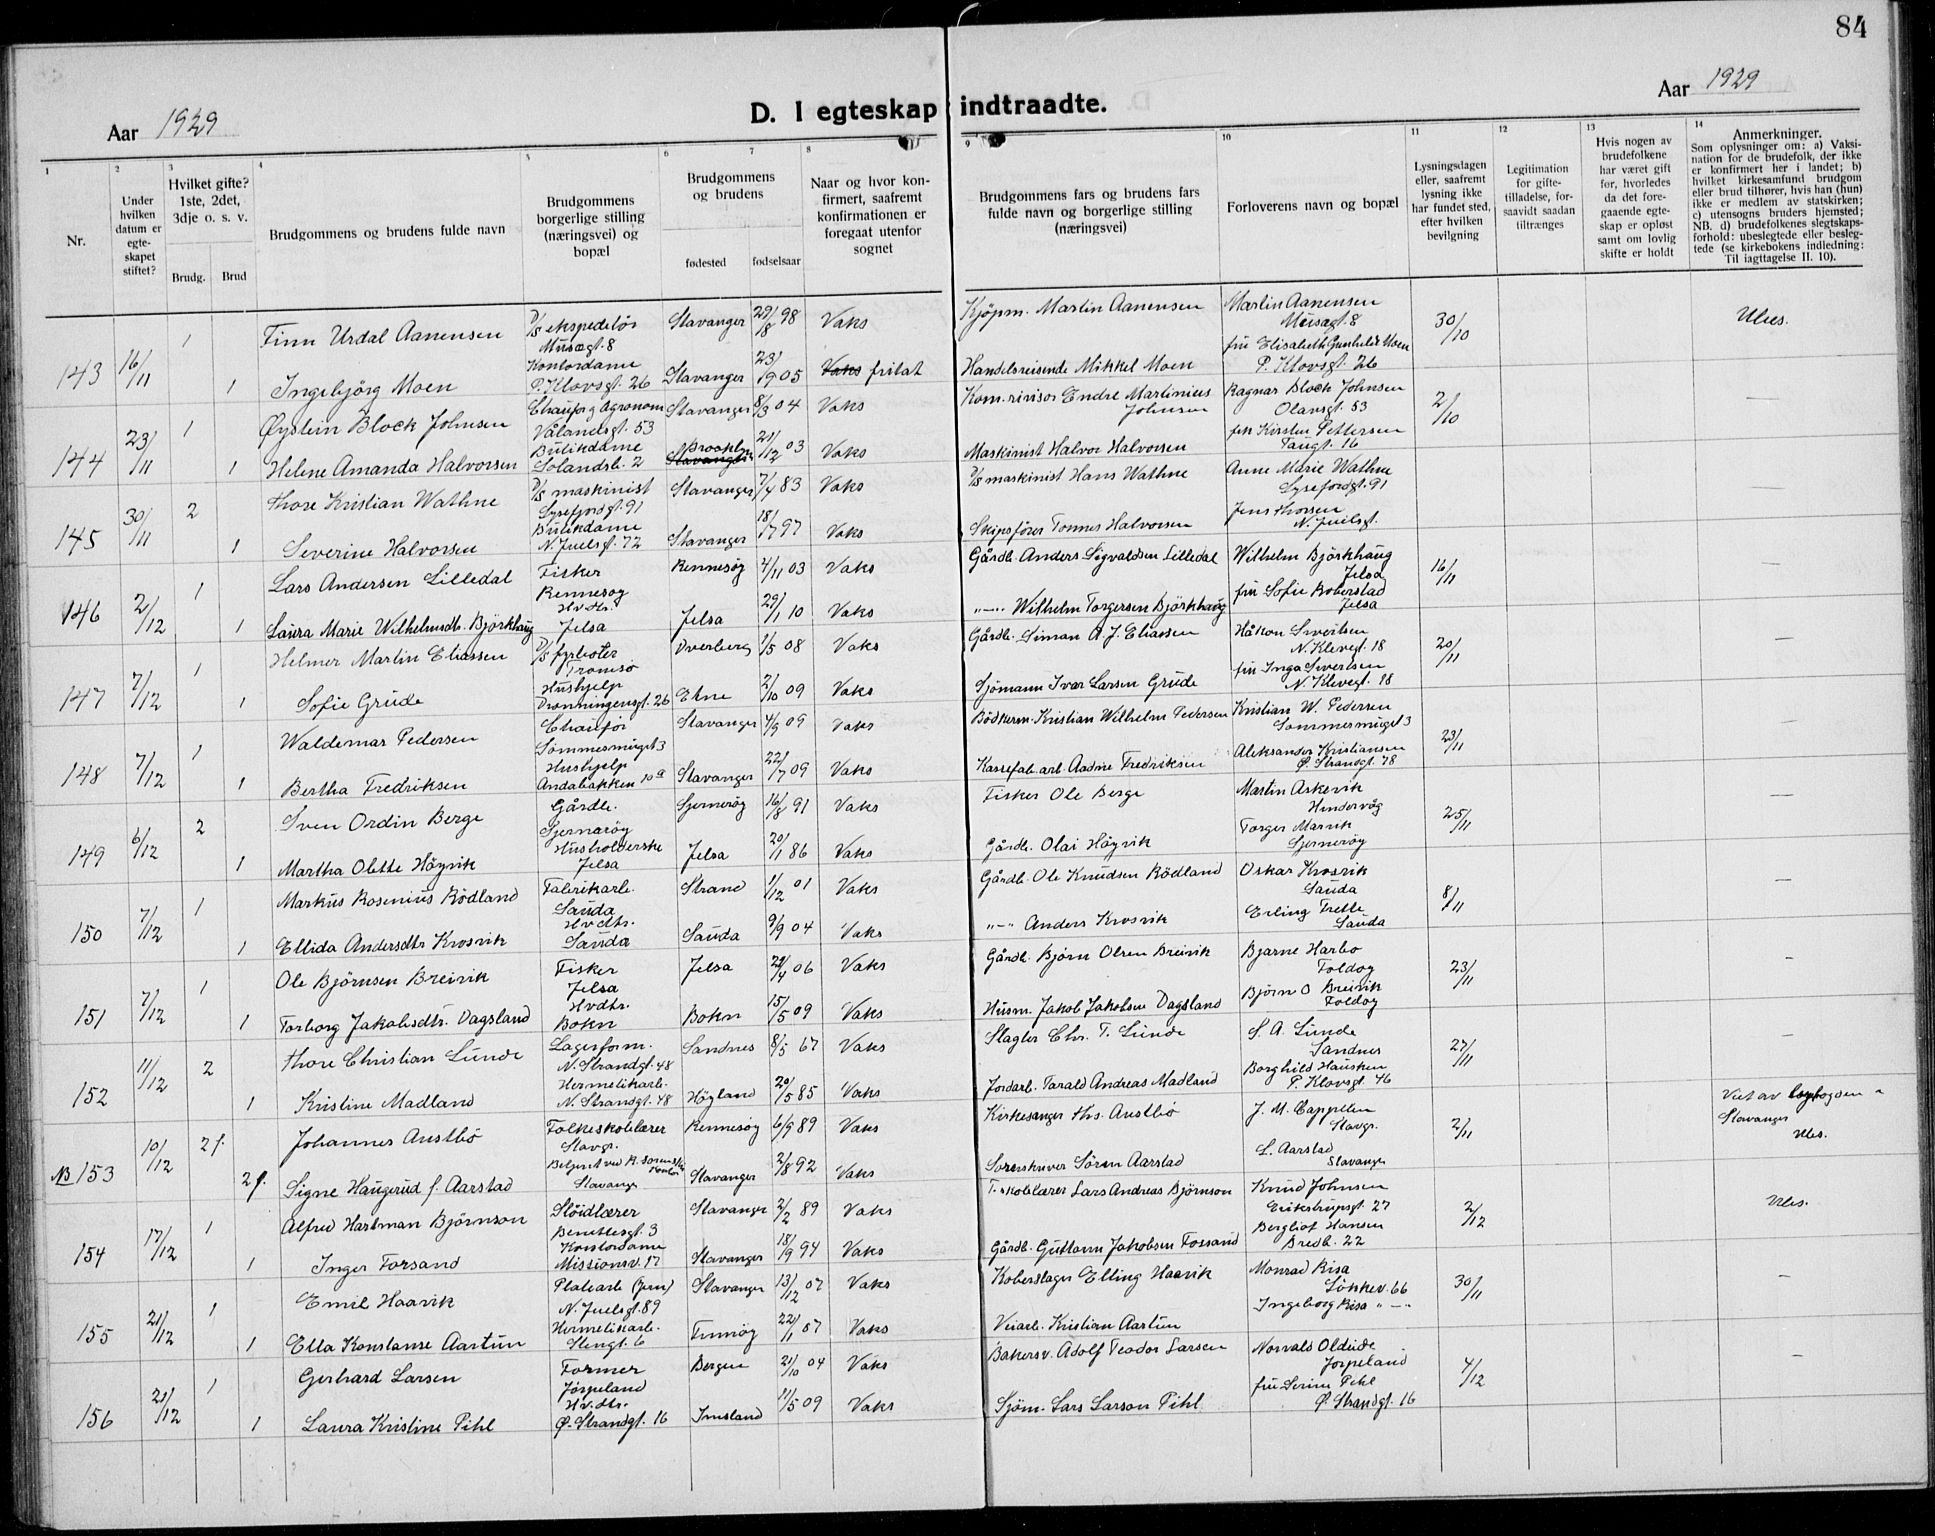 84
Aar 1929
D. I egteskap indtraadte.
Aar 1929
1 2 3 4 5 6 7 8 9 10 11 12 13 14
Nr.
Under hvilken datum er egteskapet stiftet?
Hvilket gifte? 1ste, 2det, 3dje o. s. v.
Brudg. Brud
Brudgommens og brudens fulde navn
Brudgommens borgerlige stilling (næringsvei) og bopæl
Brudgommens og brudens
fødested fødselsaar
Naar og hvor konfirmert, saafremt konfirmationen er foregaat utenfor sognet
Brudgommens fars og brudens fars fulde navn og borgerlige stilling (næringsvei)
Forloverens navn og bopæl
Lysningsdagen eller, saafremt lysning ikke har fundet sted, efter hvilken bevilgning
Legitimation for giftetilladelse, forsaavidt saadan tiltrænges
Hvis nogen av brudefolkene har været gift før, hvorledes da det foregaaende egteskap er opløst samt om lovlig skifte er holdt
Anmerkninger.
Som oplysninger om: a) Vaksination for de brudefolk, der ikke er konfirmert her i landet; b) hvilket kirkesamfund brudgom eller brud tilhører, hvis han (hun) ikke er medlem av statskirken; c) utensogns bruders hjemsted; NB. d) brudefolkenes slegtskapsforhold: ubeslegtede eller beslegtede (se kirkebokens indledning: Til iagttagelse II. 10).
143 16/11 1 Finn Urdal Aanensen D/S ekspeditör Musægt. 8 Stavanger 29/8 98 Vaks Kjöpm. Martin Aanensen Martin Aanensen Musægt. 8 30/10 Ubes.
1 Ingebjörg Moen Kontordame P. Klovsgt. 26 Stavanger 23/1 1905 Vaks fritat Handelsreisende Mikkel Moen fru Elisabeth Gunhild Moen P. Klovsgt. 26
144 23/11 1 Øystein Block Johnsen Chauför og Agronom Vålandsgt. 53 Stavanger 8/3 04 Vaks Kom. revisor Endre Martinius Johnsen Ragnar Block Johnsen Olavsgt. 53 2/10 —
1 Helene Amanda Halvorsen Butikdame Solandsb. 2 Stavanger 21/12 03 Vaks Maskinist Halvor Halvorsen frk Kirsten Pettersen Taugt. 16
145 30/11 2 Thore Kristian Wathne D/S maskinist Lysefjordgt. 91 Stavanger 7/4 83 Vaks D/S maskinist Hans Wathne Anne Marie Wathne Lysefjordgt. 91 —
1 Severine Halvorsen Butikdame N. Juelsgt. 72 Stavanger 18/1 97 Vaks Skipsförer Tonnes Halvorsen Jens Thorsen N. Juelsgt.
146 2/12 1 Lars Andersen Lilledal Fisker Rennesøy Rennesøy 4/11 03 Vaks Gårdb. Anders Sigvaldsen Lilledal Wilhelm Björkhaug Jelsa 16/11 —
1 Laura Marie Wilhelmsdtr. Björkhaug Hv.dtr. Jelsa Jelsa 29/1 10 Vaks "—" Wilhelm Torgersen Björkhaug fru Sofie Boberstad Jelsa
147 7/12 1 Helmer Martin Eliassen D/S fyrböter Tromsö Overberg 1/5 08 Vaks Gårdb. Simon A. J. Eliassen Håkon Sivertsen N. Klevegt. 18 20/11 —
1 Sofie Grude Hushjelp Dronningensgt. 26 Etne 2/10 09 Vaks Sjömann Ivar Larsen Grude fru Inga Sivertsen N. Klevegt. 18
148 7/12 1 Waldemar Pedersen Chauför Sommersmuget 3 Stavanger 4/9 09 Vaks Bödkerm. Kristian Wilhelm Pedersen Kristian W. Pedersen Sommersmuget 3 23/11 —
1 Bertha Fredriksen Hushjelp Andabakken 10a Stavanger 22/7 09 Vaks Kassefab. arb. Aadne Fredriksen Aleksander Kristiansen Ø. Strandgt. 78
149 6/12 2 Sven Ordin Berge Gårdb. Sjernarøy Sjernerøy 16/8 91 Vaks Fisker Ole Berge Martin Askevik Hindervåg 25/11 —
1 Martha Olette Höyvik Husholderske Jelsa Jelsa 20/1 86 Vaks Gårdb. Olai Höyvik Torger Marvik Sjernerøy
150 7/12 1 Markus Rosenius Rödland Fabrikarb. Sauda Strand 1/12 01 Vaks Gårdb. Ole Knudsen Rödland Oskar Krosvik Sauda 8/11 —
1 Ellida Andersdtr Krosvik Hvdtr. Sauda Sauda 9/9 04 Vaks "—" Anders Krosvik Erling Trette Sauda
151 7/12 1 Ole Björnsen Breivik Fisker Jelsa Jelsa 29/4 06 Vaks Gårdb. Bjørn Olsen Breivik Bjarne Harbo Foldøy 23/11 -
1 Torborg Jakobsdtr. Dagsland Hvdtr. Bokn Bokn 15/5 09 Vaks Husm. Jakob Jakobsen Dagsland Björn O Breivik Foldøy
152 11/12 2 Thore Christian Lunde Lagerform. N. Strandgt. 48 Sandnes 8/5 67 Vaks Slagter Chr. T. Lunde S. A. Lunde Sandnes 27/11 —
1 Kristine Madland Hermetikarb. N. Strandgt. 48 Höyland 20/5 85 Vaks Jordarb. Tarald Andreas Madland Borghild Hausken P. Klovsgt. 46
NB 153 10/12 2 f. Johannes Austbö Folkeskolelærer Stavgr. Rennesøy 6/9 89 Vaks Kirkesanger Ths. Austbö J. M. Cappelen Stavgr. 2/11 Viet av byfogden i Stavanger Ubes.
2 f. Signe Haugerud f. Aarstad Betjent ved R. Stavanger Stavanger 2/8 92 Vaks Sorenskriver Sören Aarstad L. Aarstad Stavanger
154 17/12 1 Alfred Hartman Björnson Slöidlærer Benettesgt. 3 Stavanger 2/2 89 Vaks F. skolelærer Lars Andreas Björnson Knud Johnsen Erikstrupsgt. 27 2/12 Ubes.
1 Inger Forsand Kontordame Missionsv. 17 Stavanger 18/9 94 Vaks Gårdb. Guttorm Jakobsen Fossand Bergliot Hansen Bredb. 22
155 21/12 1 Emil Haavik Platearb (jern) N. Juelsgt. 89 Stavanger 13/12 07 Vaks Koberslager Elling Haavik Monrad Risa Lökkev. 66 30/11 -
1 Ella Konstanse Aartun Hermetikarb. Stengt. 6 Finnøy 22/1 07 Vaks Veiarb. Kristian Aartun Ingeborg Risa "—"
156 21/12 1 Gerhard Larsen Former Jørpeland Bergen 21/10 04 Vaks Bakersv. Adolf Teodor Larsen Norvals Oldeide Jørpeland 4/12 —
1 Laura Kristine Pihl Hv.dtr. Ø. Strandgt. 16 Imsland 11/5 09 Vaks Sjöm. Lars Larson Pihl fru Serine Pihl Ø. Strandgt. 16